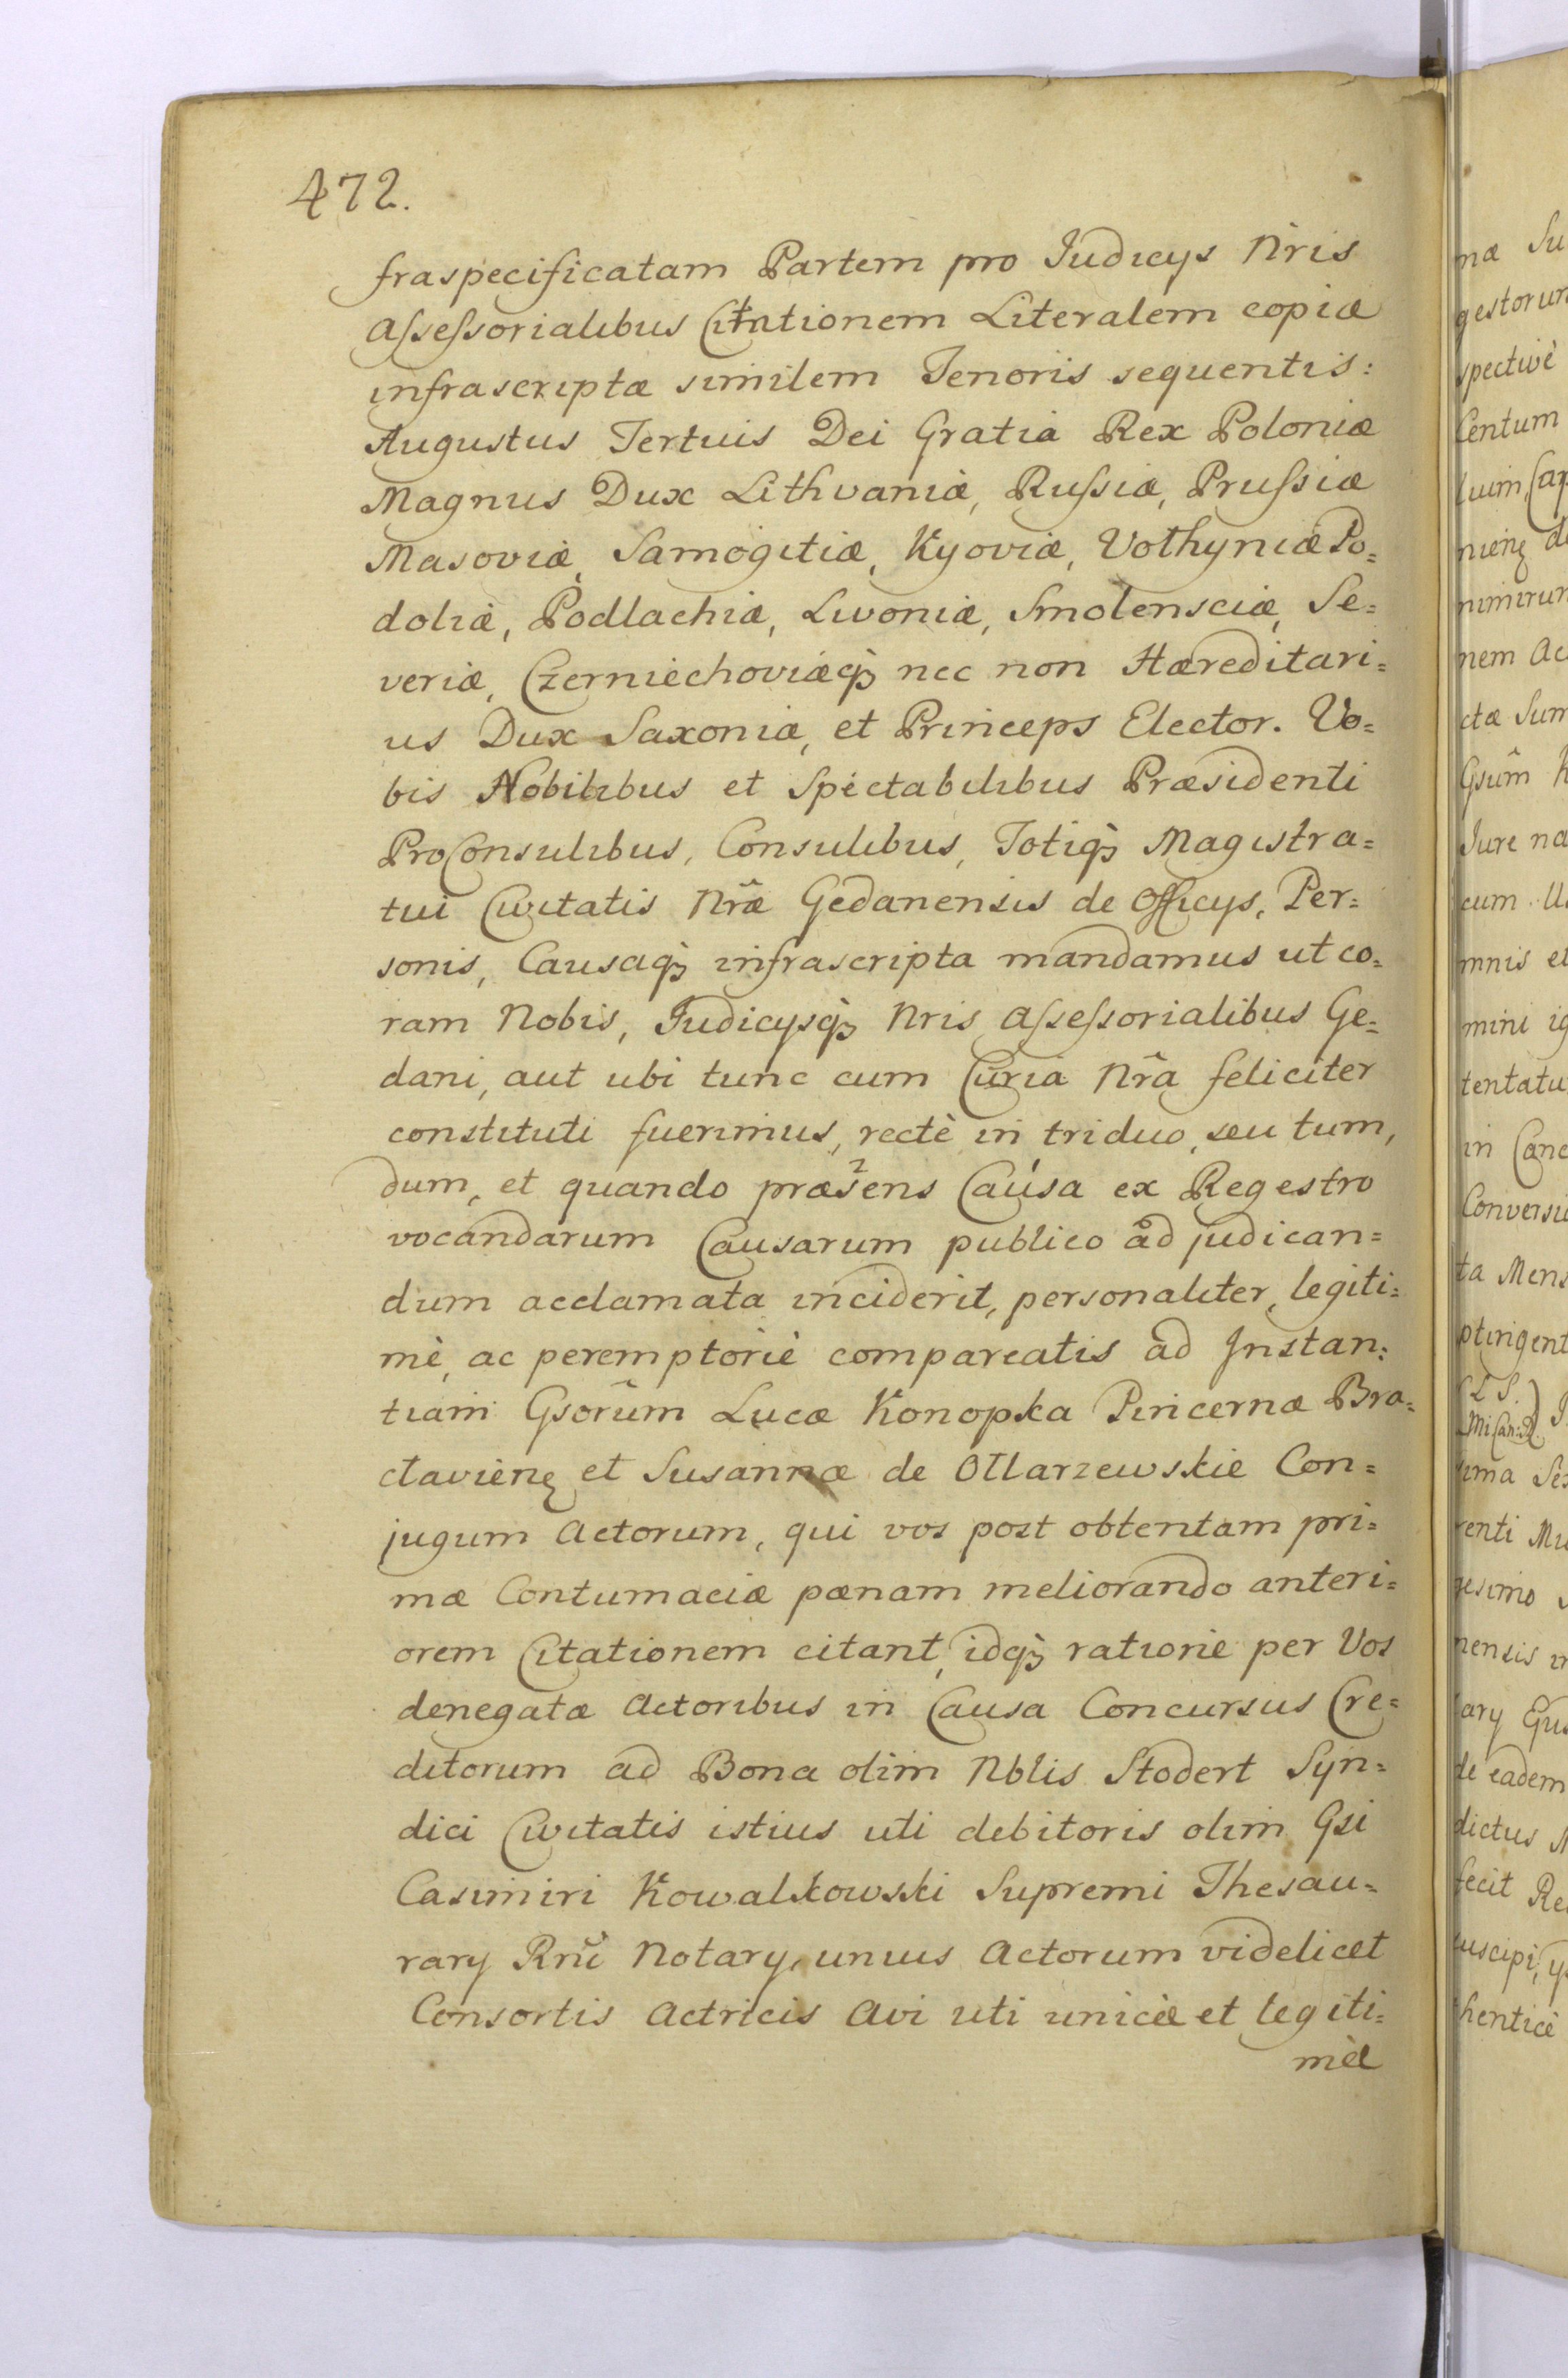 472.
fraspecificatam Partem pro Judicys Nris
Assessorialibus Citationem Literalem copiæ
infrascriptæ similem Tenoris sequentis:
Augustus Tertius Dei Gratia Rex Poloniæ
Magnus Dux Lithvaniæ, Russiæ, Prussiæ
Masoviæ, Samogitiæ, Kyoviæ, Vothyniæ Po=
doliæ, Podlachiæ, Livoniæ, Smolensciæ, Se=
veriæ, Czerniechoviæq3 nec non Hæreditari=
us Dux Saxoniæ, et Princeps Elector. Vo=
bis Nobilibus et Spectabilibus Præsidenti
ProConsulibus, Consulibus, Totiq3 Magistra=
tui Civitatis Nræ Gedanensis de Officys, Per=
sonis, Causaq3 infrascripta mandamus ut co=
ram Nobis, Judicysq3 Nris Assessorialibus Ge=
dani, aut ubi tunc cum Curia Nrâ feliciter
constituti fuerimus, rectè in triduo, seu tum,
dum, et quando præsens Causa ex Regestro
vocandarum Causarum publico ad judican=
dum acclamata inciderit, personaliter, legiti=
mè, ac peremptoriè compareatis ad Instan=
tiam Gsorûm Lucæ Konopka Pincernæ Bra=
ctavienę et Susannæ de Ottarzewskie Con=
jugum Actorum, qui vos post obtentam pri=
mæ Contumaciæ pænam meliorando anteri=
orem Citationem citant, idq3 ratione per Vos
denegatæ Actoribus in Causa Concursus Cre=
ditorum ad Bona olim Nblis Stodert Syn=
dici Civitatis istius uti debitoris olim Gsi
Casimiri Kowalkowski Supremi Thesau=
rary Rnî Notary, unius Actorum videlicet
Consortis Actricis Avi uti unicæ et legiti=
mæ
mæ Su
gestorum
spectivè
Centum
nienę
nem Ac
ctæ Sum
Jure na
cum
mnis et
mini
tentatu
in Canc
Conversu
ta Mens
ptingent
L S.
ima
renti
gesimo
nensis in
ary
de eadem
dictus
fecit Re
suscipi
henticè